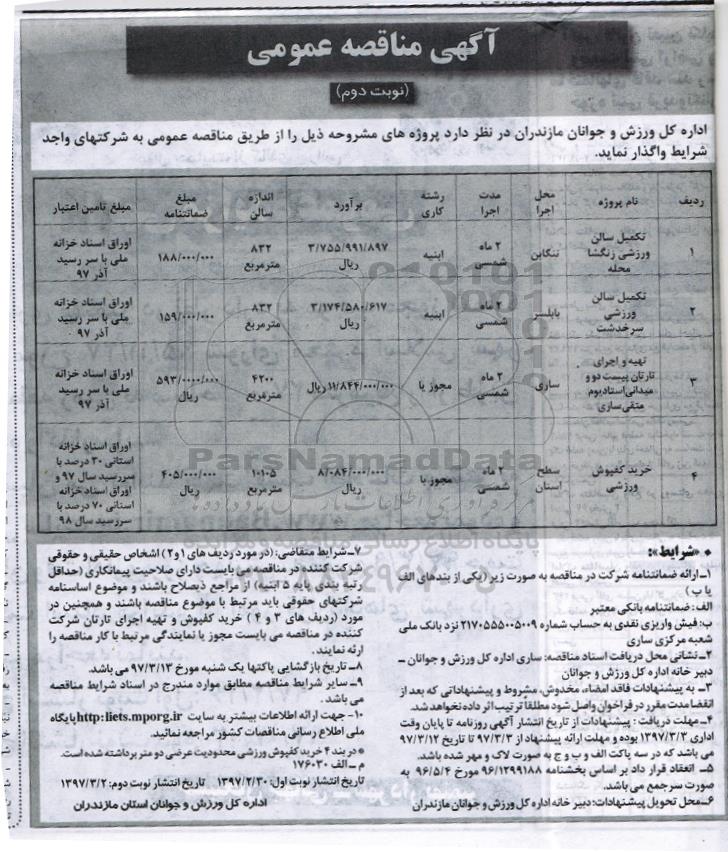 آگهی مناقصه عمومی
(نوبت دوم)
اداره کل ورزش و جوانان مازندران در نظر دارد پروژه های مشروحه ذیل را از طریق مناقصه عمومی به شرکتهای واجد
شرایط واگذار نماید.
ردیف نام پروژه محل اجرا مدت اجرا رشته کاری برآورد اندازه سالن مبلغ ضمانتنامه مبلغ تامین اعتبار
۱ تکمیل سالن ورزشی زنگشا محله تنکابن ۲ ماه شمسی ابنیه ۳/۷۵۵/۹۹۱/۸۹۷ ریال ۸۳۲ مترمربع ۱۸۸/۰۰۰/۰۰۰ اوراق اسناد خزانه ملی با سر رسید آذر ۹۷
۲ تکمیل سالن ورزشی سرخدشت بابلسر ۲ ماه شمسی ابنیه ۳/۱۷۴/۵۸۰/۶۱۷ ریال ۸۳۲ مترمربع ۱۵۹/۰۰۰/۰۰۰ اوراق اسناد خزانه ملی با سر رسید آذر ۹۷
۳ تهیه و اجرای تارتان پیست دو و میدانی استادیوم متقی ساری ساری ۲ ماه شمسی مجوز یا ۱۱/۸۴۴/۰۰۰/۰۰۰ ریال ۴۲۰۰ مترمربع ۵۹۳/۰۰۰۰/۰۰۰ ریال اوراق اسناد خزانه ملی با سر رسید آذر ۹۷
۴ خرید کفپوش ورزشی سطح استان ۲ ماه شمسی مجوز یا ۸/۰۸۴/۰۰۰/۰۰۰ ریال ۱۰۱۰۵ مترمربع ۴۰۵/۰۰۰/۰۰۰ ریال اوراق اسناد خزانه استانی ۳۰ درصد با سررسید سال ۹۷ و اوراق اسناد خزانه استانی ۷۰ درصد با سررسید سال ۹۸
ParsNamadData
* «شرایط»:
۱ـ ارائه ضمانتنامه شرکت در مناقصه به صورت زیر (یکی از بندهای الف
یا ب)
الف: ضمانتنامه بانکی معتبر
ب: فیش واریزی نقدی به حساب شماره ۲۱۷۰۵۵۵۰۰۵۰۰۹ نزد بانک ملی
شعبه مرکزی ساری
۲ـ نشانی محل دریافت اسناد مناقصه: ساری اداره کل ورزش و جوانان ـ
دبیر خانه اداره کل ورزش و جوانان
۳ـ به پیشنهادات فاقد امضاء، مخدوش، مشروط و پیشنهاداتی که بعد از
انقضا مدت مقرر در فراخوان واصل شود مطلقا ترتیب اثر داده نخواهد شد.
۴ـ مهلت دریافت: پیشنهادات از تاریخ انتشار آگهی روزنامه تا پایان وقت
اداری ۱۳۹۷/۳/۳ بوده و مهلت ارائه پیشنهاد از ۹۷/۳/۳ تا تاریخ ۹۷/۳/۱۲
می باشد که در سه پاکت الف و ب و ج به صورت لاک و مهر شده باشد.
۵ـ انعقاد قرار داد بر اساس بخشنامه ۹۶/۱۲۹۹۱۸۸ مورخ ۹۶/۵/۴ به
صورت سرجمع می باشد.
۶ـ محل تحویل پیشنهادات: دبیر خانه اداره کل ورزش و جوانان مازندران
۷ـ شرایط متقاضی: (در مورد ردیف های ۱ و ۲) اشخاص حقیقی و حقوقی
شرکت کننده در مناقصه می بایست دارای صلاحیت پیمانکاری (حداقل
رتبه بندی پایه ۵ ابنیه) از مراجع ذیصلاح باشند و موضوع اساسنامه
شرکتهای حقوقی باید مرتبط با موضوع مناقصه باشند و همچنین در
مورد (ردیف های ۳ و ۴) خرید کفپوش و تهیه اجرای تارتان شرکت
کننده در مناقصه می بایست مجوز یا نمایندگی مرتبط با کار مناقصه را
ارئه نمایند.
۸ـ تاریخ بازگشایی پاکتها یک شنبه مورخ ۹۷/۳/۱۳ می باشد.
۹ـ سایر شرایط مناقصه مطابق موارد مندرج در اسناد شرایط مناقصه
می باشد.
۱۰- جهت ارائه اطلاعات بیشتر به سایت http:liets.mporg.ir پایگاه
ملی اطلاع رسانی مناقصات کشور مراجعه نمائید.
* در بند ۴ خرید کفپوش ورزشی محدودیت عرضی دو متر برداشته شده است.
م ـ الف ۱۷۶۰۳۰
تاریخ انتشار نوبت اول: ۱۳۹۷/۲/۳۰ تاریخ انتشار نوبت دوم: ۱۳۹۷/۳/۲
اداره کل ورزش و جوانان استان مازندران